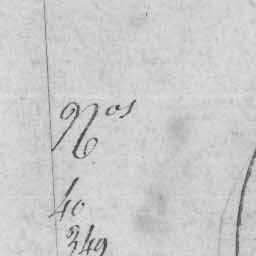 Nos
40
349